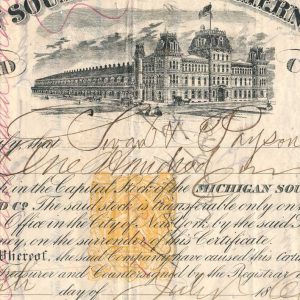 SOU ERN
D C
fy, that
One Hundred
k in the Capital Stock of the MICHIGAN SOU
D Co. The said stock is transferable only on
Office in the City of New York by the said S
ney, on the surrender of this Certificate.
Whereof, the said Company have caused this Certif
Treasurer and Countersigned by the Registrar o
day of July 186